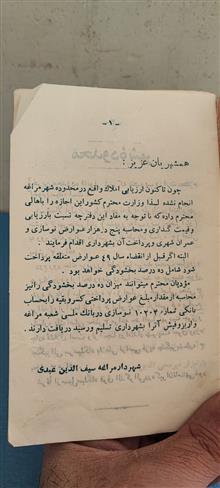 -۱-
همشهریان عزیز :
چون تاکنون ارزیابی املاک واقع در محدوده شهر مراغه
انجام نشده لذا وزارت محترم کشور این اجازه را باهالی
محترم داده که با توجه به مفاد این دفترچه نسبت بارزیابی
وقیمت گذاری و محاسبه پنج در هزار عوارض نوسازی و
عمران شهری و پرداخت آن بشهرداری اقدام فرمایند .
البته اگر قبل از انقضاء سال ۴۹ عوارض متعلقه پرداخت
شود شامل ده درصد بخشودگی خواهد بود .
مؤدیان محترم میتوانند میزان ده درصد بخشودگی را نیز
محاسبه از مقدار مبلغ عوارض پرداختی کسر و بقیه را بحساب
بانکی شماره ۱۰۲۰۲ نوسازی در بانک ملی شعبه مراغه
واریز و فیش آنرا بشهرداری تسلیم و رسید دریافت دارند .
شهردار مراغه سیف الدین عبدی